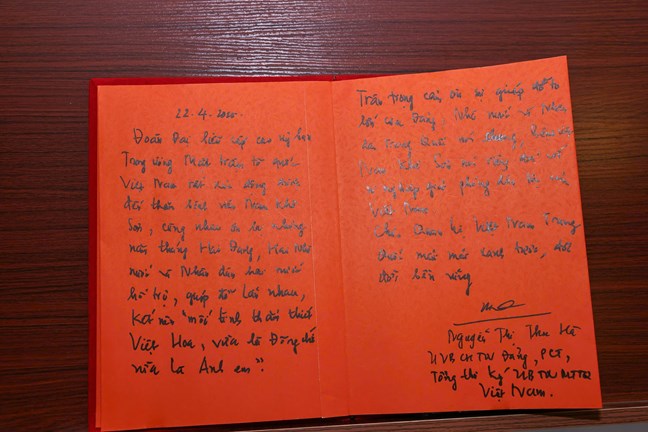 22.4.2025.
Đoàn Đại biểu cấp cao Uỷ ban
Trung ương Mặt trận Tổ quốc
Việt Nam rất xúc động được
đến thăm
Sơn, cùng nhau ôn lại những
năm tháng Hai Đảng, Hai Nhà
nước và Nhân dân hai nước
hỗ trợ, giúp đỡ lẫn nhau,
Kết nên "mối tình thắm thiết
Việt Hoa, vừa là Đồng chí
vừa là Anh em".
Trân trọng cảm ơn sự giúp đỡ to
lớn của Đảng, Nhà nước và Nhân
dân Trung Quốc nói chung,
Nam Khê Sơn nói riêng đối với
sự nghiệp giải phóng dân tộc của
Việt Nam.
Chúc Quan hệ Việt Nam Trung
Quốc mãi mãi xanh tươi, đời
đời bền vững
Nguyễn Thị Thu Hà
UVBCHTW Đảng, PCT,
Tổng thư ký UBTW MTTQ
Việt Nam.